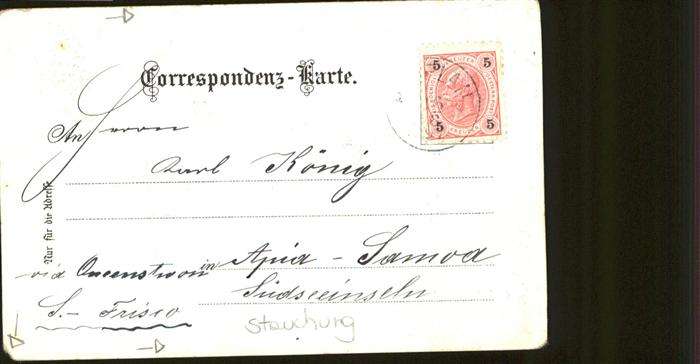 Correspondenz-Karte.
5 5
5 5
An Herrn
Karl König
Nur für die Adresse
in Apia - Samoa
via Queenstown
Südseeinseln
S. - Frisco
Stauchung